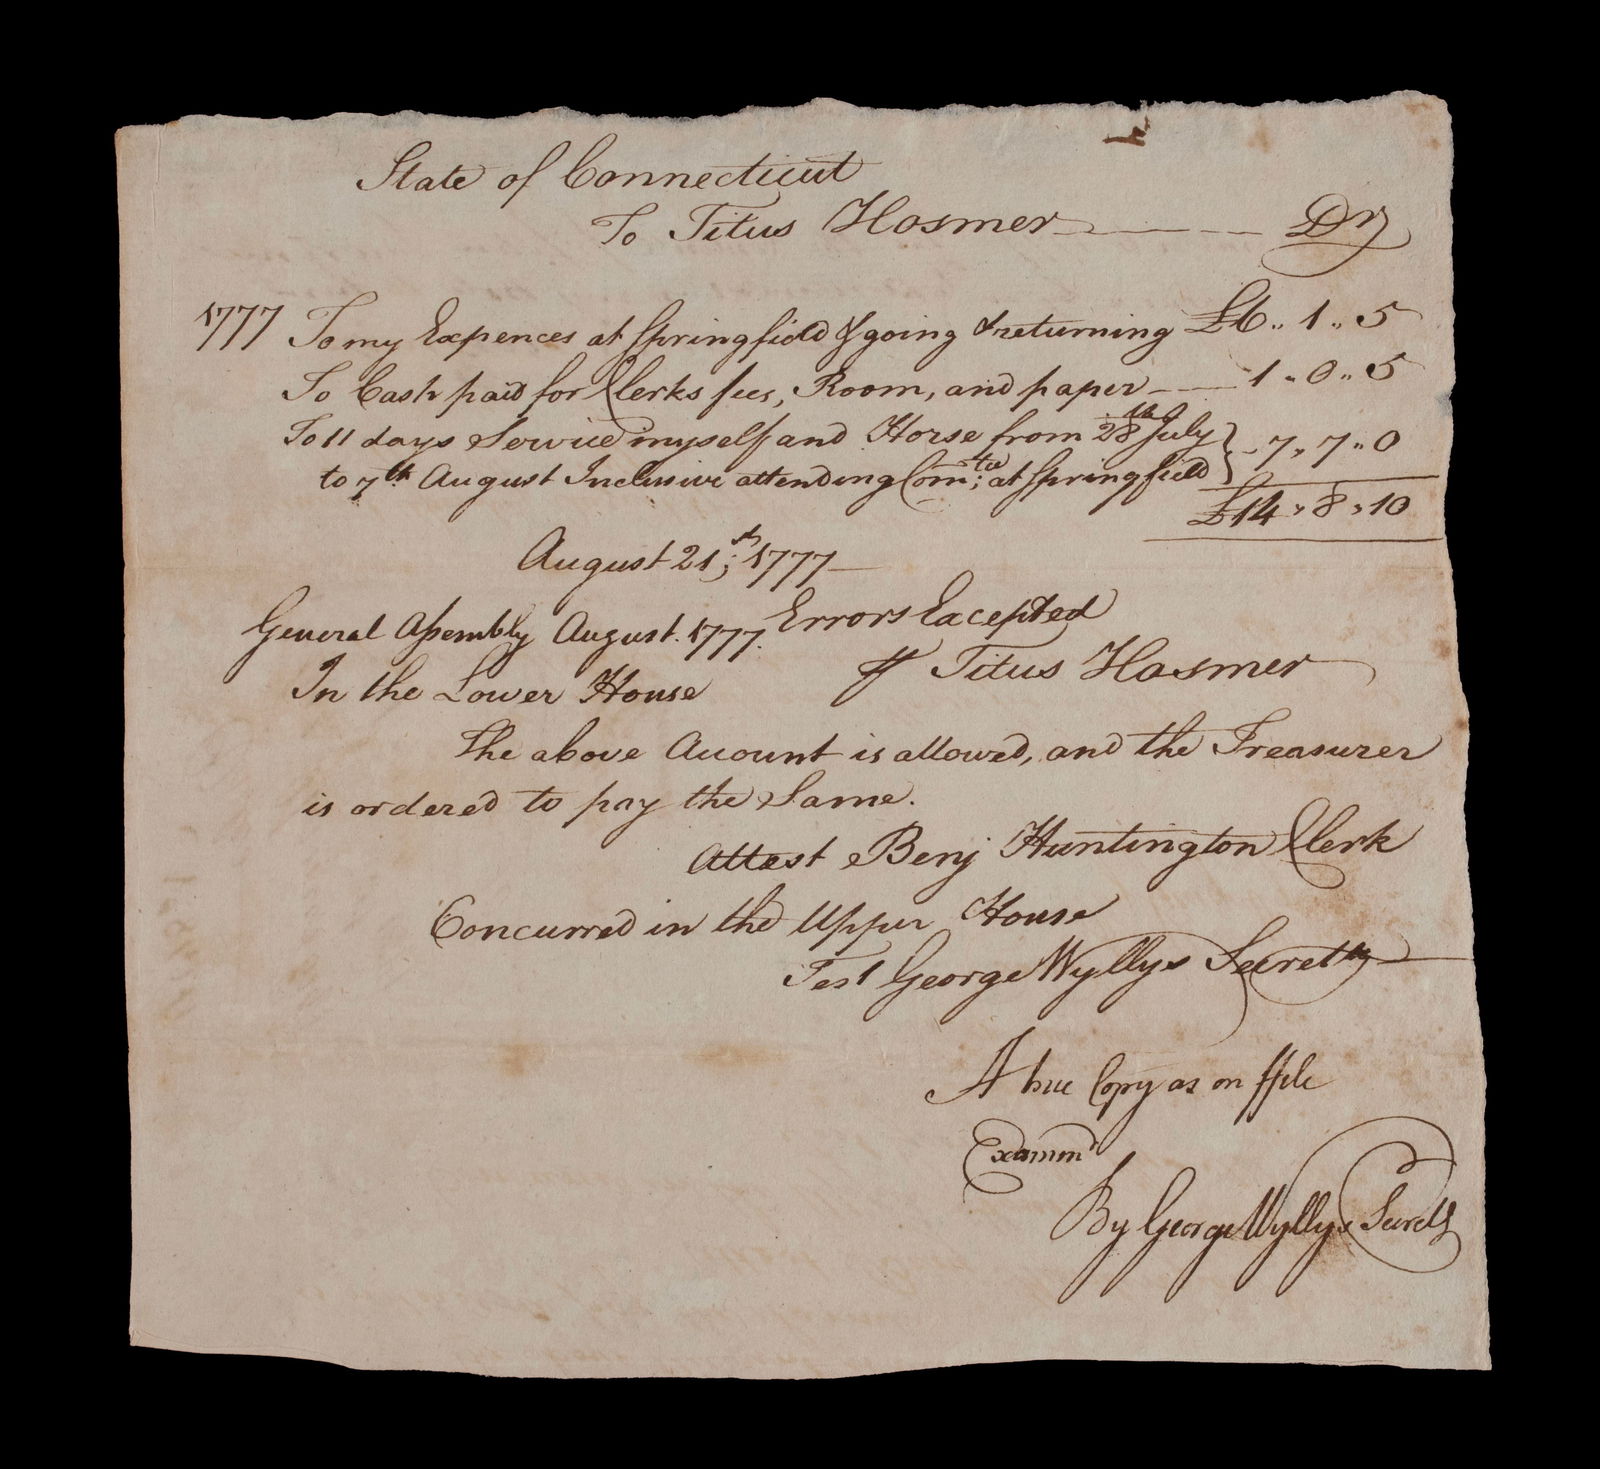 State of Connecticut
To Titus Hosmer Dr
1777 To my Expences at Springfield & going & returning £6 „ 1 „ 5
To Cash paid for Clerks fees, Room, and paper — 1 „ 0 „ 5
To 11 days Service myself and Horse from 28th July
to 7th August Inclusive attending Comtee; at Springfield } 7 „ 7 „ 0
£14 „ 8 „ 10
August 21st; 1777
Errors Excepted
General Assembly August. 1777.
⅌ Titus Hosmer
In the Lower House
The above Account is allowed, and the Treasurer
is ordered to pay the Same.
Attest Benj Huntington Clerk
Concurred in the Upper House
Test George Wyllys Secretry
A true Copy as on ffile
Examind
By George Wyllys Secrety